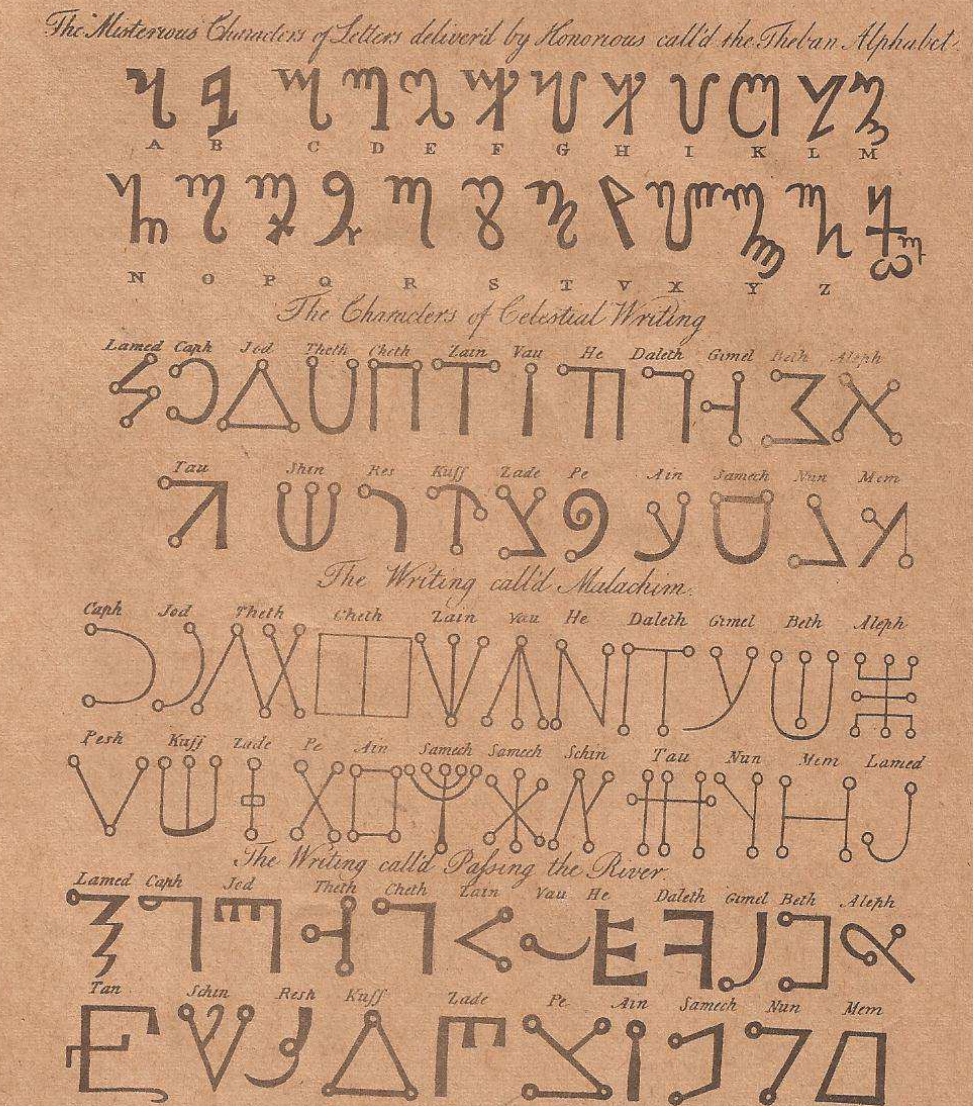 The Misterious Characters of Letters deliver'd by Honorious call'd the Theban Alphabet.
A B C D E F G H I K L M
N O P Q R S T V X Y Z
The Characters of Celestial Writing
Lamed Caph Jod Theth Cheth Zain Vau He Daleth Gimel Beth Aleph
Tau Shin Res Kuff Zade Pe Ain Samech Nun Mem
The Writing call'd Malachim.
Caph Jod Theth Cheth Zain Vau He Daleth Gimel Beth Aleph
Pesh Kuff Zade Pe Ain Samech Samech Schin Tau Nun Mem Lamed
The Writing call'd Paſsing the River.
Lamed Caph Jod Theth Cheth Zain Vau He Daleth Gimel Beth Aleph
Tan Schin Resh Kuff Zade Pe Ain Samech Nun Mem